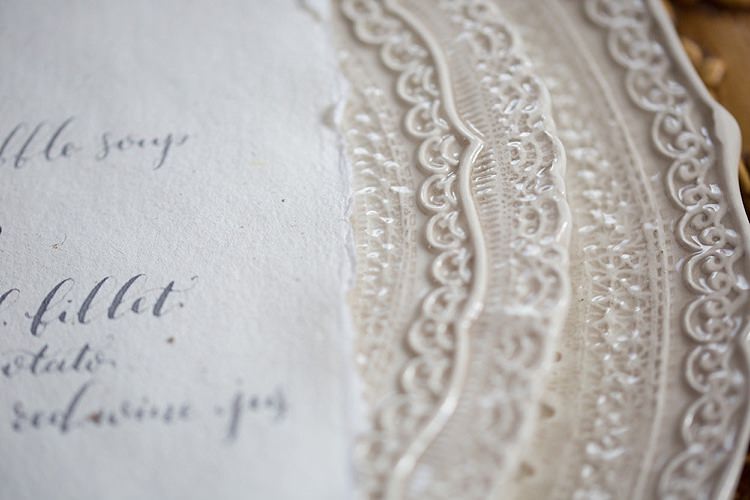 ffle soup
. fillet
otato
red wine jus